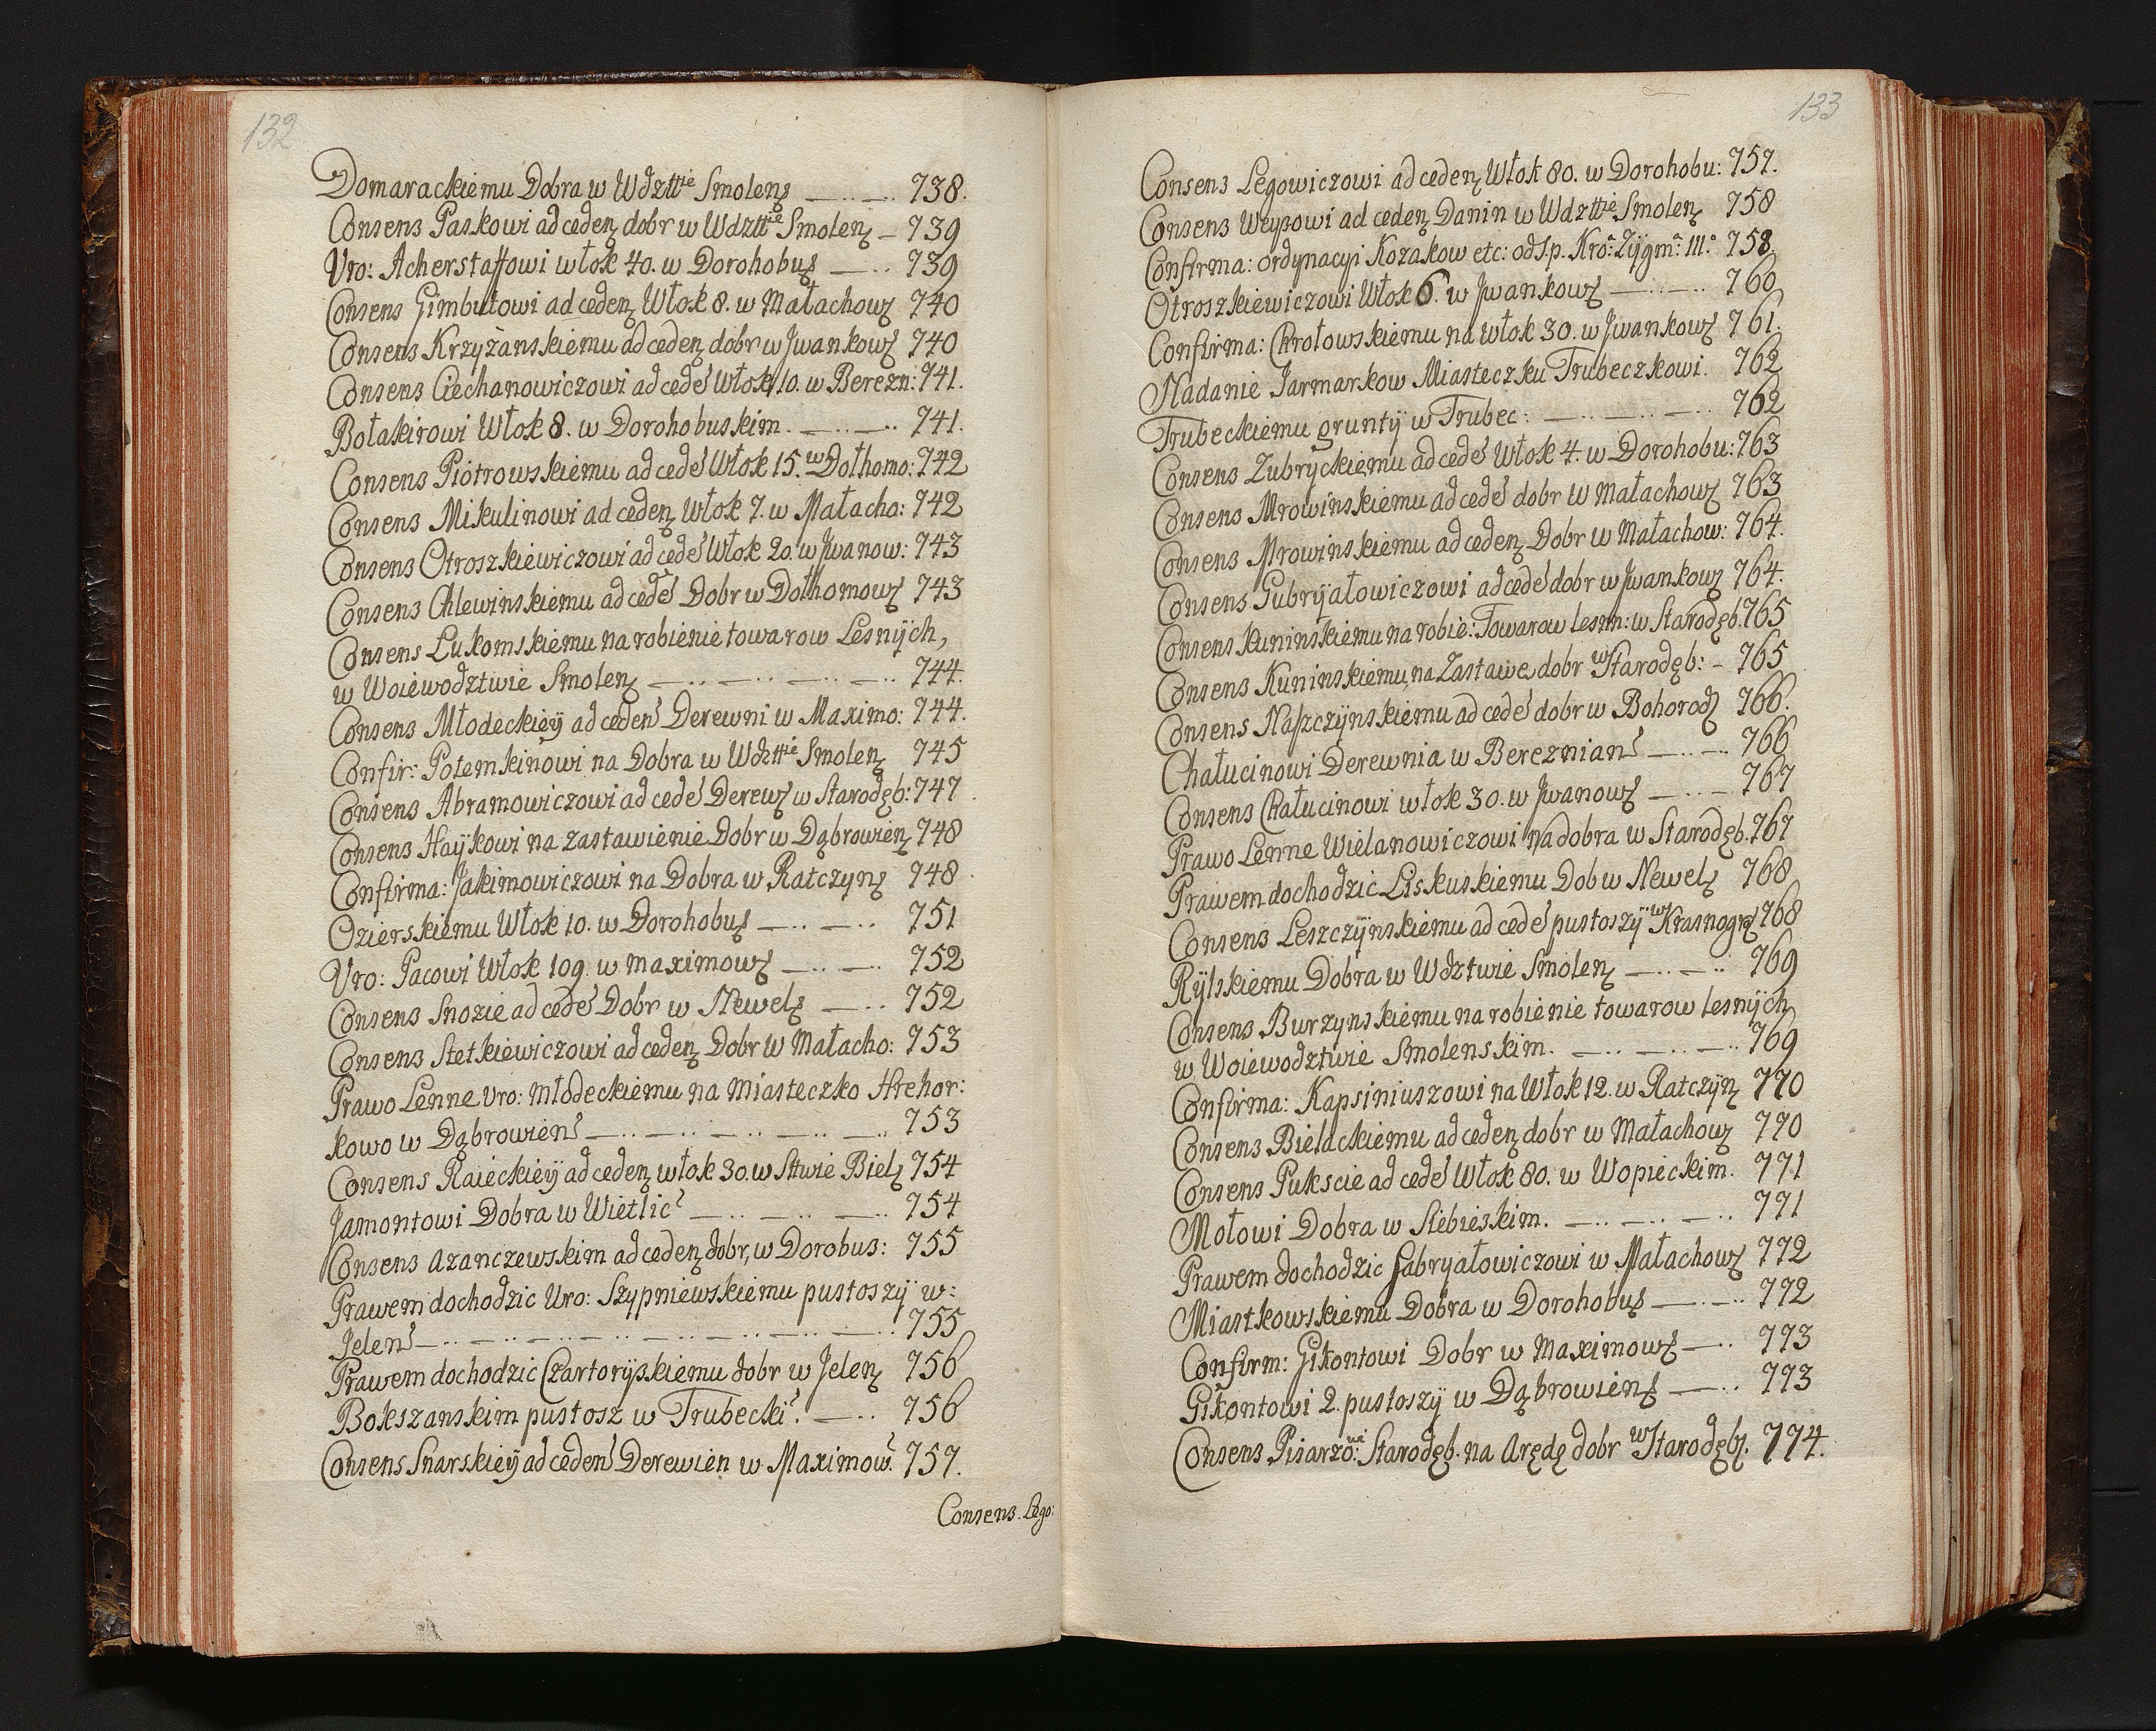 132
Domarackiemu Dobra w Wdzttie Smolenß — .. — .. 738.
Consens Paskowi ad cedenz dobr w Wdzttie Smolenz — 739
Vro: Acherstaffowi włok 40. w Dorohobuß — .. 739
Consens Gimbutowi ad cedenz Włok 8. w Małachowz 740
Consens Krzyżanskiemu ad cedenz dobr w Jwankowz 740
Consens Ciechanowiczowi ad cede Włok 10. w Berezn: 741.
Bołakirowi Włok 8. w Dorohobuskim. — .. — .. 741.
Consens Piotrowskiemu ad cede Włok 15. w Dołhomo: 742
Consens Mikulinowi ad cedenz Włok 7. w Małacho: 742
Consens Otroszkiewiczowi ad cede Włok 20. w Jwanow: 743
Consens Chlewinskiemu ad cede Dobr w Dołhomowz 743
Consens Łukomskiemu na robienie towarow Lesnÿch,
w Woiewodztwie Smolenz — .. — .. — .. — .. 744.
Consens Młodeckieÿ ad ceden Derewni w Maximo: 744.
Confir: Potemkinowi na Dobra w Wdzttie Smolenz 745
Consens Abramowiczowi ad cede Derewz w Starodęb: 747
Consens Haÿkowi na zastawienie Dobr w Dąbrowienz 748
Confirma: Jakimowiczowi na Dobra w Ratczynß 748.
Ozierskiemu Włok 10. w Dorohobuß — .. — .. 751
Vro: Pacowi Włok 109. w Maximowz — .. — .. 752
Consens Snozie ad cede Dobr w Newelß — .. 752
Consens Stetkiewiczowi ad cedenz Dobr w Małacho: 753
Prawo Lenne Vro: Młodeckiemu na Miasteczko Hrehor:
kowo w Dąbrowien — .. — .. — .. — .. — .. 753
Consens Raieckieÿ ad cedenz włok 30. w Sttwie Bielz 754
Jamontowi Dobra w Wietlic — .. — .. — .. 754
Consens Azanczewskim ad cedenz dobr, w Dorobus: 755
Prawem dochodzic Uro: Szypniewskiemu pustoszÿ w:
Jelen — .. — .. — .. — .. — .. — .. — .. 755
Prawem dochodzic Czartoryskiemu dobr w Jelenz 756
Bokszanskim pustosz w Trubecki. — .. 756
Consens Snarskieÿ ad ceden Derewien w Maximow. 757.
Consens. Lego:
133
Consens Legowiczowi ad cedenz Włok 80. w Dorohobu: 757.
Consens Weyßowi ad cedenz Danin w Wdzttie Smolenz 758
Confirma: ordynacyi Kozakow etc: od S.p. Kro: Zÿgm: III.° 758
Otroszkiewiczowi Włok 6. w Jwankowß — .. — .. 760
Confirma: Chrołowskiemu na włok 30. w Jwankowz 761.
Nadanie Jarmarkow Miasteczku Trubeczkowi. 762
Trubeckiemu gruntÿ w Trubec: — .. — .. — .. 762
Consens Zubryckiemu ad cede Włok 4. w Dorohobu: 763
Consens Mrowinskiemu ad cede dobr w Małachowz 763
Consens Mrowinskiemu ad cedenz Dobr w Małachow: 764.
Consens Gubrÿałowiczowi ad cede dobr w Jwankowz 764.
Consens Kuninskiemu na robie: Towarow lesnn: w Starodęb. 765
Consens Kuninskiemu na Zastawę dobr w Starodęb: — 765
Consens Naszczÿnskiemu ad cede dobr w Bohorodz 766.
Chałucinowi Derewnia w Bereznian — .. — .. 766
Consens Chałucinowi włok 30. w Jwanowß — .. — 767
Prawo Lenne Wielanowiczowi na dobra w Starodęb. 767
Prawem dochodzic Liskuskiemu Dob w Newelz 768
Consens Leszczÿnskiemu ad cede pustoszÿ w Krasnogrz 768
Rÿlskiemu Dobra w Wdztwie Smolenz — .. — .. 769
Consens Burzynskiemu na robienie towarow lesnÿch
w Woiewodztwie Smolenskim. — .. — .. — .. 769
Confirma: Kapsiniuszowi na Włok 12. w Ratczÿnz 770
Consens Bielackiemu ad cedenz dobr w Małachowz 770
Consens Pukscie ad cede Włok 80. w Wopieckim. 771
Mołowi Dobra w Siebieskim. — .. — .. — .. 771
Prawem dochodzic Gabryałowiczowi w Małachowz 772
Miastkowskiemu Dobra w Dorohobuß — .. — .. 772
Confirm: Gikontowi Dobr w Maximowß — .. 773
Gikontowi 2. pustoszÿ w Dąbrowienß — .. 773
Consens Pisarzo:wi Starodęb. na Arędę dobr w Starodębz. 774.